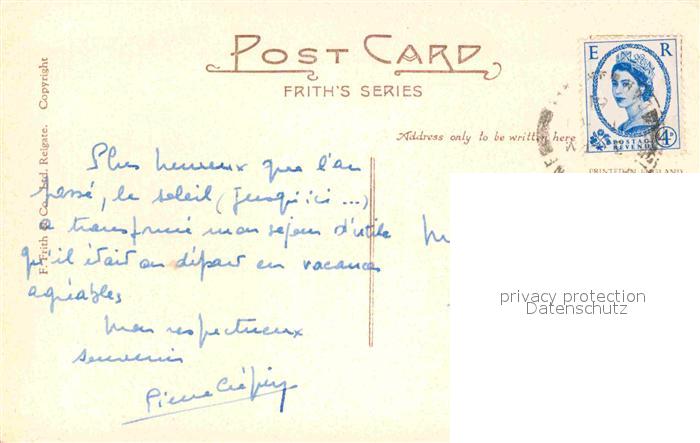 POST CARD
FRITH'S SERIES
E R
POSTAGE
REVENUE
4D
Address only to be written here
PRINTED IN ENGLAND
F. Frith & Co., Ltd. Reigate. Copyright
Plus heureux que l'an
passé, le soleil (jusqu'ici ...)
a transformé mon séjour d'utile
qu'il était au départ en vacances
agréables
Mon respectueux
souvenir
Pierre
M
privacy protection
Datenschutz